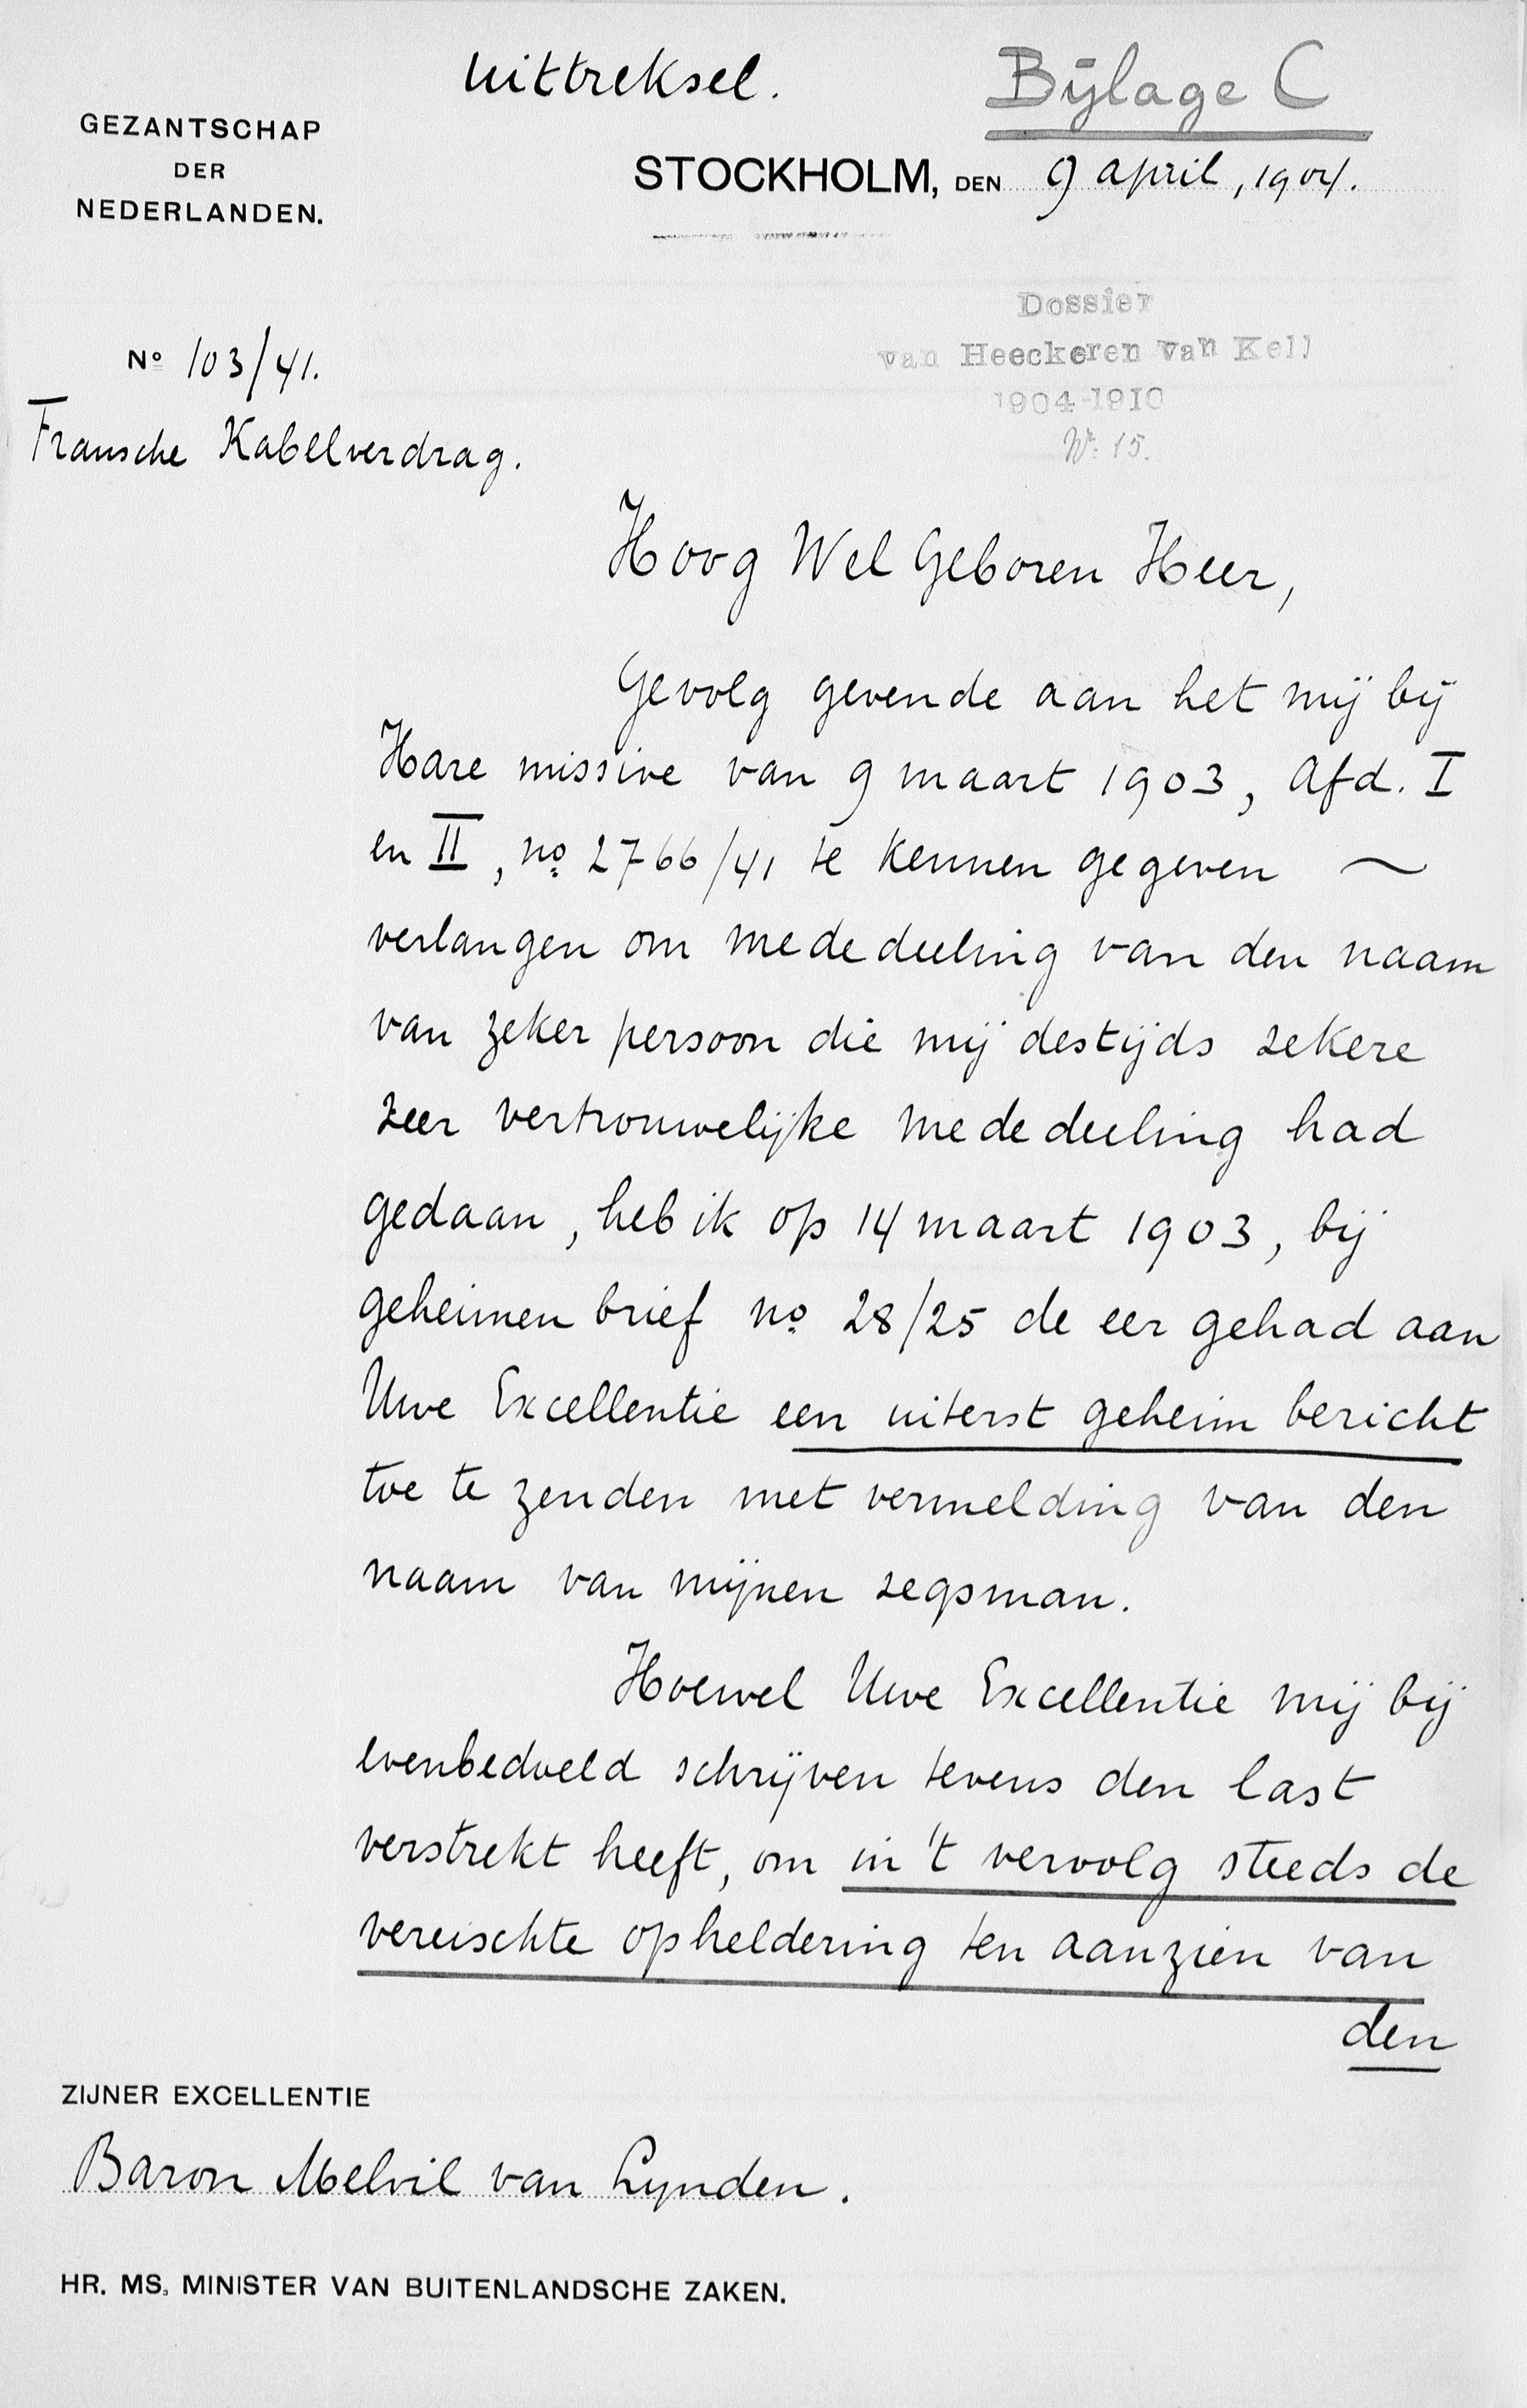 Uittreksel.
Bijlage C
GEZANTSCHAP
DER
NEDERLANDEN.
STOCKHOLM, DEN 9 april, 1904.
Dossier
van Heeckeren van Kell
1904-1910
Nº 15.
Nº 103/41.
Fransche Kabelverdrag.
Hoog Wel Geboren Heer,
Gevolg gevende aan het mij bij
Hare missive van 9 maart 1903, Afd. I
en II, nº 2766/41 te kennen gegeven ~
verlangen om mededeeling van den naam
van zeker persoon die mij destijds zekere
zeer vertrouwelijke mededeeling had
gedaan, heb ik op 14 maart 1903, bij
geheimen brief nº 28/25 de eer gehad aan
Uwe Excellentie een uiterst geheim bericht
toe te zenden met vermelding van den
naam van mijnen zegsman.
Hoewel Uwe Excellentie mij bij
evenbedoeld schrijven tevens den last
verstrekt heeft, om in 't vervolg steeds de
vereischte opheldering ten aanzien van
den
ZIJNER EXCELLENTIE
Baron Melvil van Lynden.
HR. MS. MINISTER VAN BUITENLANDSCHE ZAKEN.